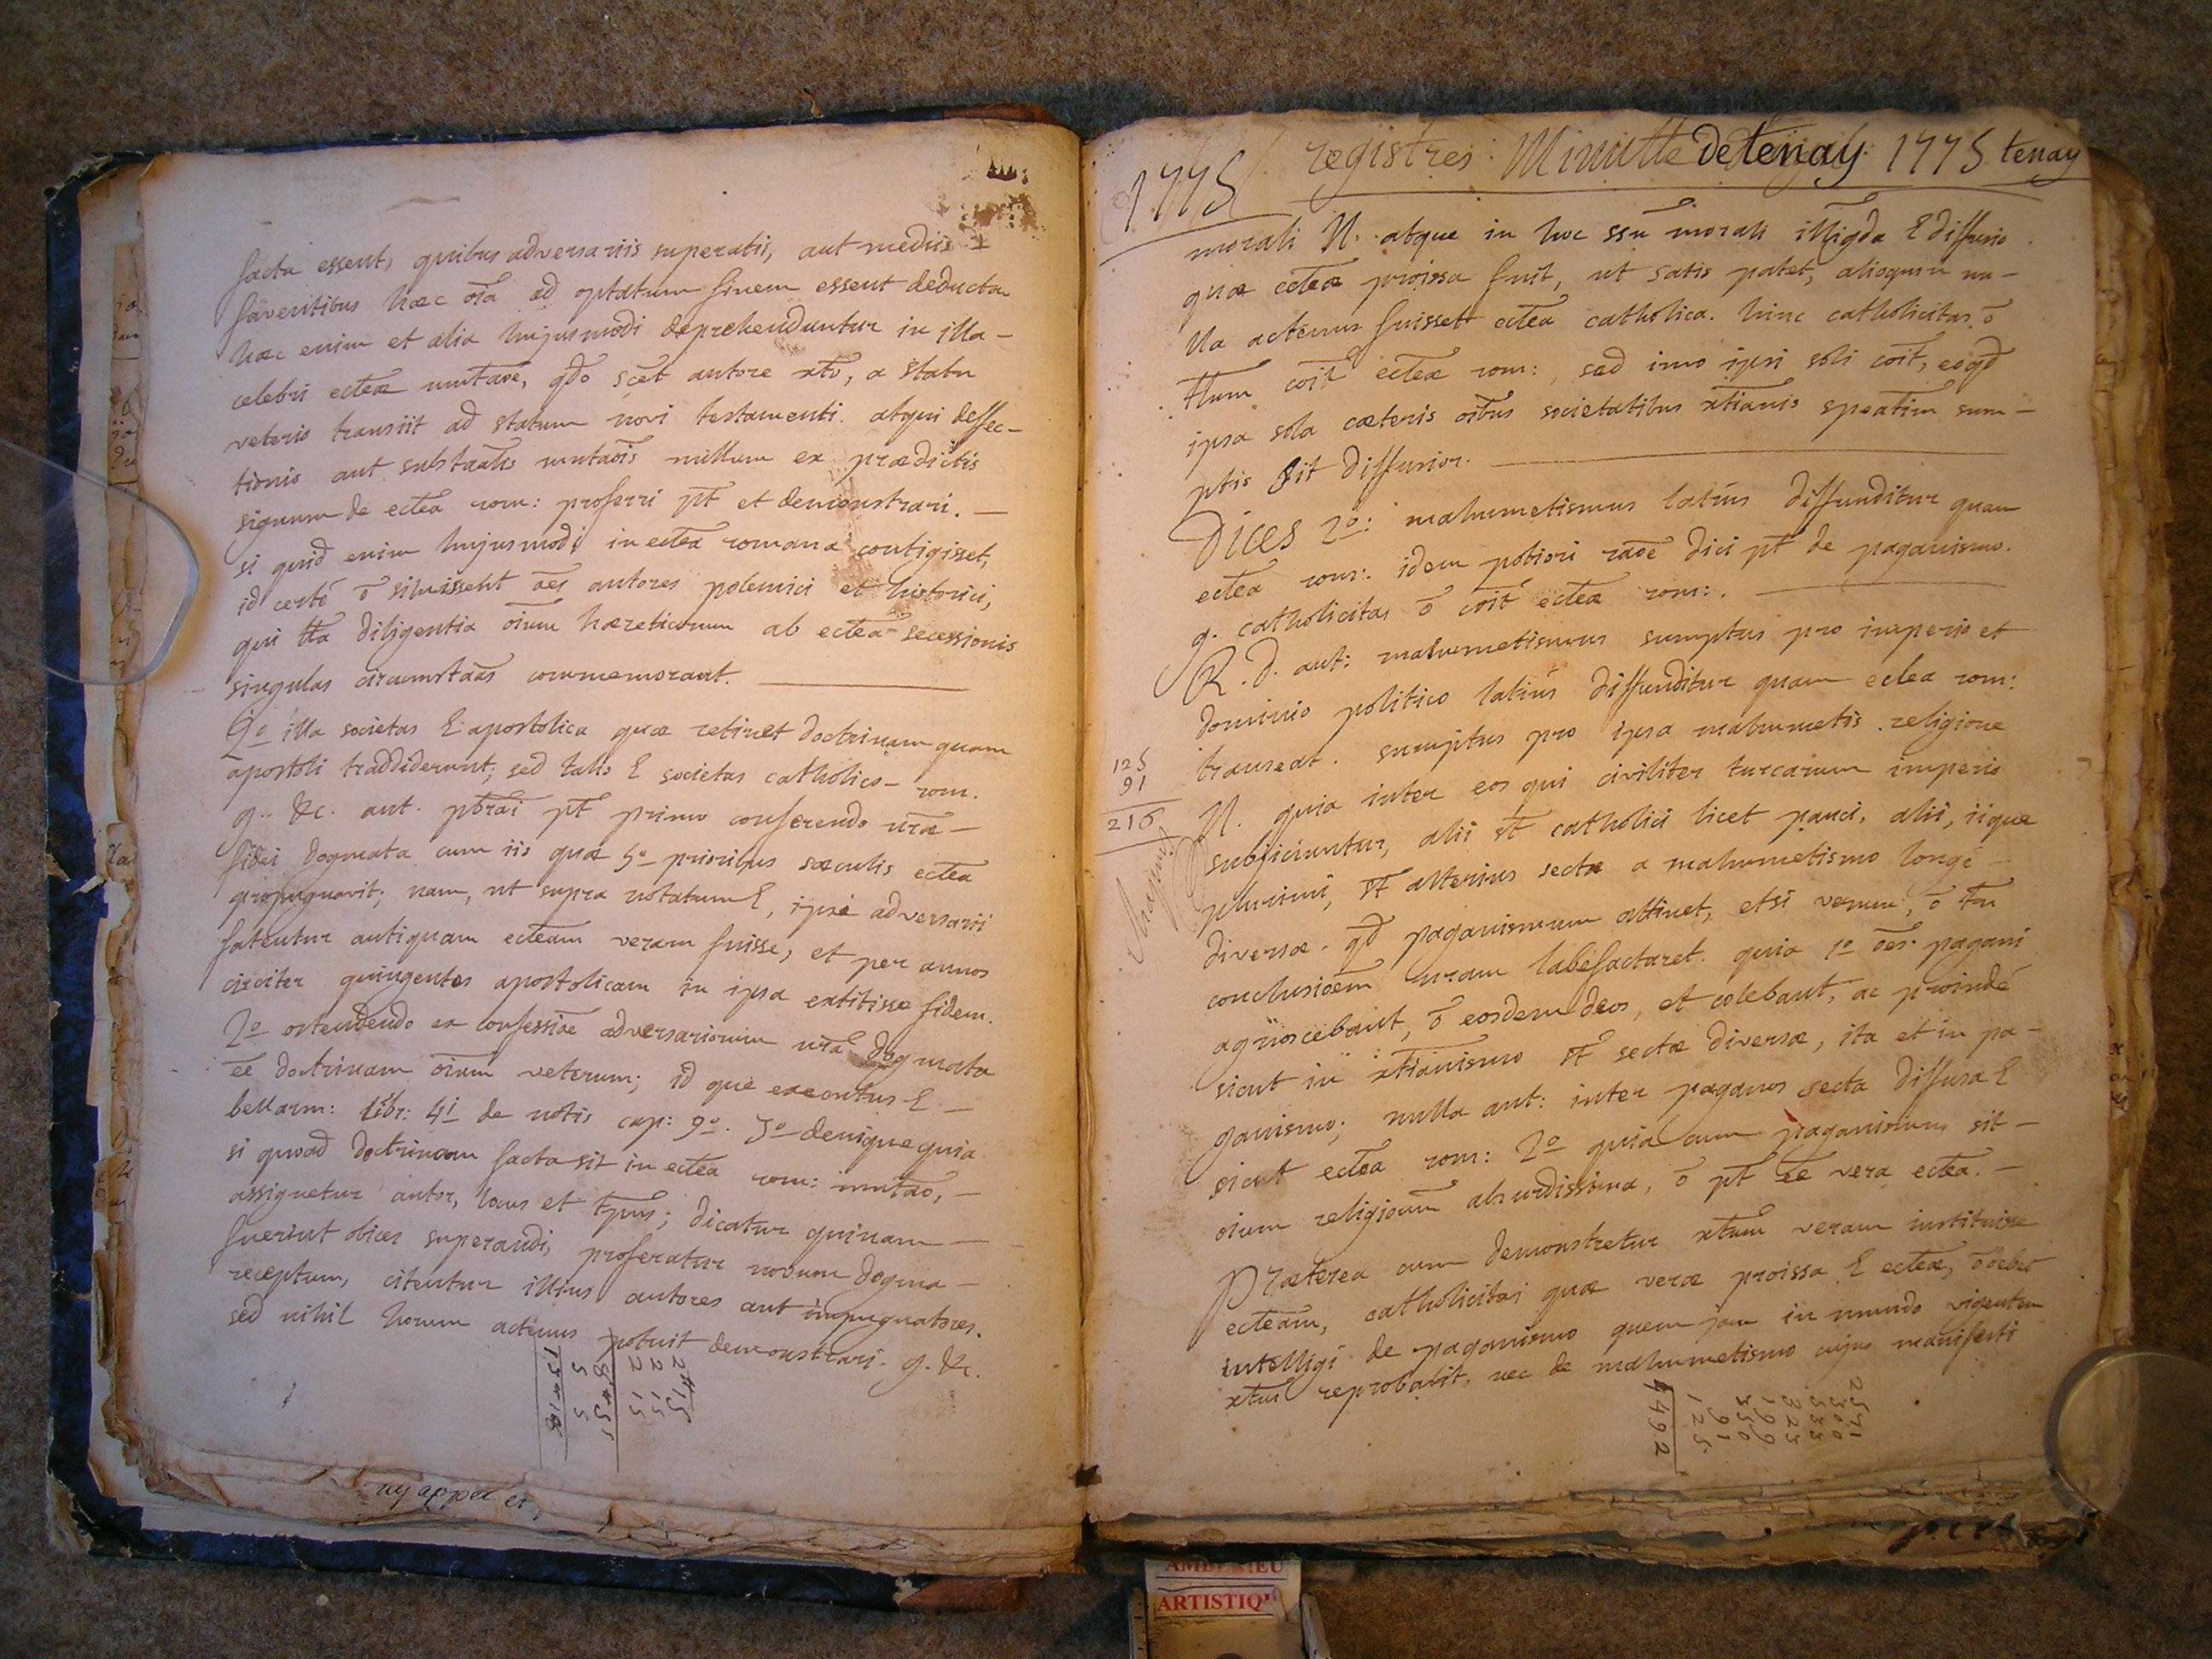 facta essent, quibus adversariis superatis, aut mediis
faventibus hæc oīa ad optatum finem essent deducta
hæc enim et alia hujusmodi deprehenduntur in illa –
celebri ecteæ mutaoe, qdo scēt autore xto, a statu
veteris transiit ad statum novi testamenti. atqui deffec–
tionis aut substaālis mutaōis nullum ex prædictis
signum de ectea rom: proferri pt et demonstrari. –
si quid enim hujusmodi in ectea romana contigisset,
id certé ō siluissent oēs autores polemici et historici,
qui tta diligentia oīum hæreticorum ab ectea secessionis
singulas circumstāas commemorant.
2º illa societas E apostolica quæ retinet doctrinam quam
apostoli traddiderunt; sed talis E societas catholico – rom.
g. &c. ant. pbrāi pt primo conferendo nrā –
fidei dogmata cum iis quæ 5º prioribus sæculis ectea
propugnavit; nam, ut supra notatum E, ipsi adversarii
fatentur antiquam ecteam veram fuisse, et per annos
circiter quingentos apostolicam in ipsa extitisse fidem.
2º ostendendo ex confessioe adversariorum nrā dogmata
ēē doctrinam oīum veterum; id que exeontus E –
bellarm: libr: 4i de notis cap: 9º. 3º denique quia
si quoad doctrinam facta sit in ectea rom: mutāo, –
assignetur autor, locus et tpus; dicatur quinam –
fuerint obices superandi, proferatur novum dogma –
receptum, citentur illius autores aut impugnatores.
sed nihil horum actenus potuit demonstrari. g. &c.
2 # 15
2 15
2 15
8 # 5
5 5
13 # 10
ny appel et
1775 registres: Minutte de tenay. 1775 tenay
morali N. atque in hoc ssu morali E diffusio.
quæ ecteæ proissa fuit, ut satis patet, alioquin nu–
lla actenus fuisset ectea catholica. hinc catholicitas ō
ttum coit ecteæ rom:, sed imo ipsi soli coit, eoqd
ipsa sola cæteris oibus societatibus xtianis speatim sum–
ptis sit diffusior.
Dices 2º: mahumetismus latiús diffunditur quam
ectea rom: idem potiori raōe dici pt de paganismo.
g. catholicitas ō coit ecteæ rom:.
R. D. ant: mahumetismus sumptus pro imperio et
dominio politico latiús diffunditur quam ectea rom:
transeat. sumptus pro ipsa mahumetis religione
N. quia inter eos qui civiliter turcarum imperio
subjiciuntur, alii st catholici licet pauci, alii, iique
plurimi, st alterius sectæ a mahumetismo longé
diversæ. qd paganismum attinet, etsi verum, ō tn
conclusioēm nram labefactaret. quia 1º oēs pagani
agnoscebant, ō eosdem deos, et colebant, ac proindé
sicut in xtianismo st sectæ diversæ, ita et in pa–
ganismo; nulla ant: inter paganos secta diffusa E
sicut ectea rom: 2º quia cum paganismus sit –
oium religionum absurdissima, ō pt ēē vera ectea. –
Præterea cum demonstretur xtum veram instituisse
ecteam, catholicitas quæ veræ proissa E ecteæ, ō debet
intelligi de paganismo quem jam in mundo vigentem
xtus reprobavit, nec de mahumetismo cujus manifesti
125
91
216
2571
300
333
323
199
550
91
125
4492
AMBERIEU
ARTISTIQ